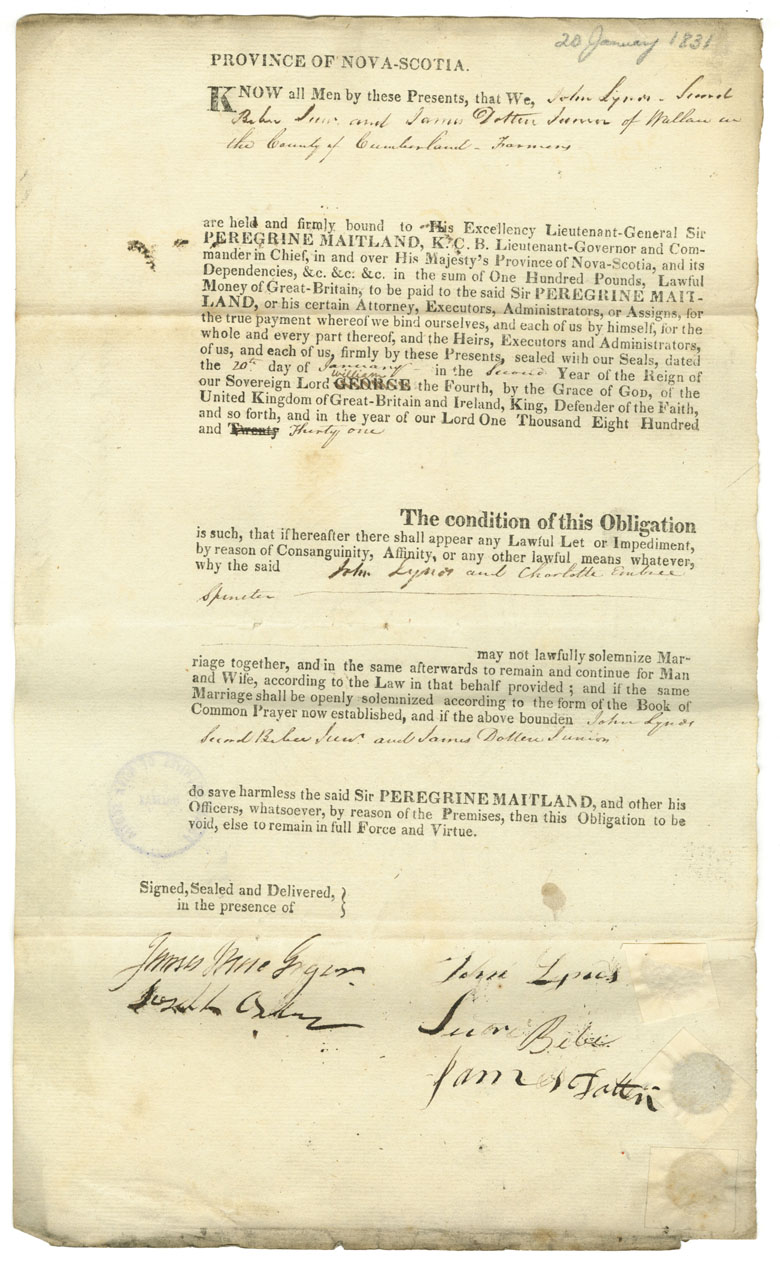 20 January 1831
PROVINCE OF NOVA-SCOTIA.
KNOW all Men by these Presents, that We, John Lynds - Secord
Beebe Junr. and James Dotten Junior of Wallace in
the County of Cumberland - Farmers
are held and firmly bound to His Excellency Lieutenant-General Sir
PEREGRINE MAITLAND, K. C. B. Lieutenant-Governor and Com-
mander in Chief, in and over His Majesty's Province of Nova-Scotia, and its
Dependencies, &c. &c. &c. in the sum of One Hundred Pounds, Lawful
Money of Great-Britain, to be paid to the said Sir PEREGRINE MAIT-
LAND, or his certain Attorney, Executors, Administrators, or Assigns, for
the true payment whereof we bind ourselves, and each of us by himself, for the
whole and every part thereof, and the Heirs, Executors and Administrators,
of us, and each of us, firmly by these Presents, sealed with our Seals, dated
the 20th day of January in the Second Year of the Reign of
William
our Sovereign Lord GEORGE the Fourth, by the Grace of GOD, of the
United Kingdom of Great-Britain and Ireland, King, Defender of the Faith,
and so forth, and in the year of our Lord One Thousand Eight Hundred
and Twenty Thirty one
The condition of this Obligation
is such, that if hereafter there shall appear any Lawful Let or Impediment,
by reason of Consanguinity, Affinity, or any other lawful means whatever,
why the said John Lynds and Charlotte Embree
Spinster
may not lawfully solemnize Mar-
riage together, and in the same afterwards to remain and continue for Man
and Wife, according to the Law in that behalf provided ; and if the same
Marriage shall be openly solemnized according to the form of the Book of
Common Prayer now established, and if the above bounden John Lynds
Secord Beebe Junr. and James Dotten Junior
do save harmless the said Sir PEREGRINE MAITLAND, and other his
Officers, whatsoever, by reason of the Premises, then this Obligation to be
void, else to remain in full Force and Virtue.
Signed, Sealed and Delivered,
in the presence of
James
John Lynds
Joseph
Secord Beebe
James Dotten